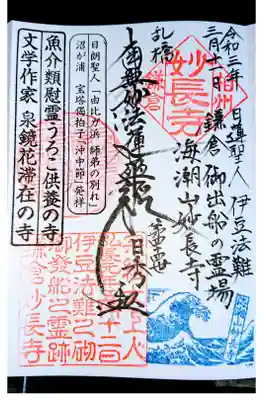 令和三年 日蓮聖人 伊豆法難
三月十一日 鎌倉 御出船の霊場
相州
妙長寺
鎌倉
海潮山 妙長寺
乱橋
南無妙法蓮華経
日朗聖人「由比ガ浜 師弟の別れ」
沼が浦 宝塔偈拍子「沖中節」発祥
魚介類慰霊うろこ供養の寺
文学作家 泉鏡花滞在の寺
弘長元年五月十二日
伊豆法難之砌
御発船之霊跡
鎌倉妙長寺